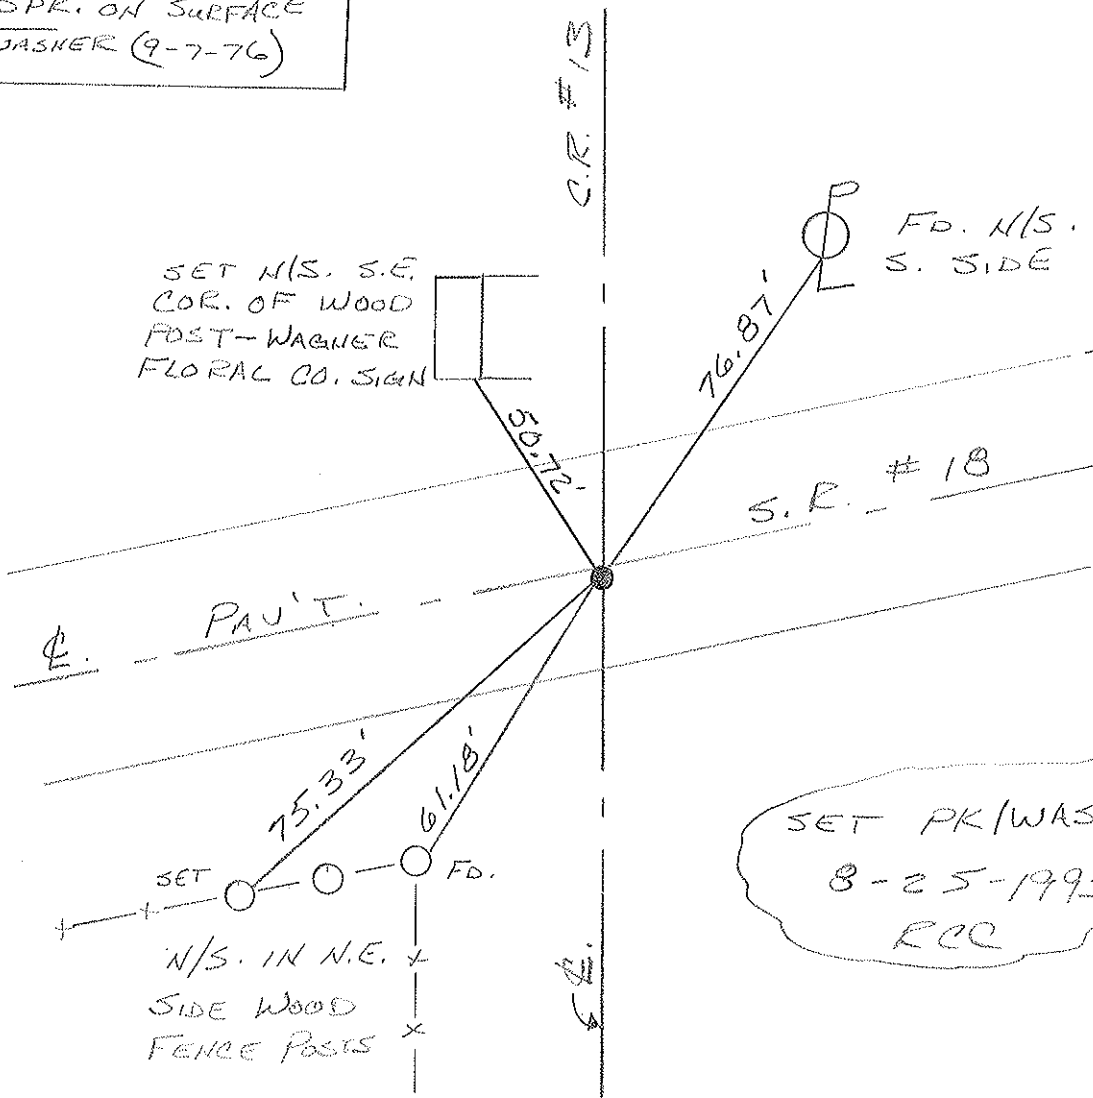 SPR. ON SURFACE
(9-7-76)
C.R. # 13
FD. N/S.
S. SIDE
SET N/S. S.E.
COR. OF WOOD
POST-WAGNER
FLORAL CO. SIGN
76.87'
50.72'
S.R. # 18
PAV'T.
℄.
75.33'
61.18'
SET
FD.
N/S. IN N.E.
SIDE WOOD
FENCE POSTS
℄.
SET PK/WAS
8-25-199
RCC